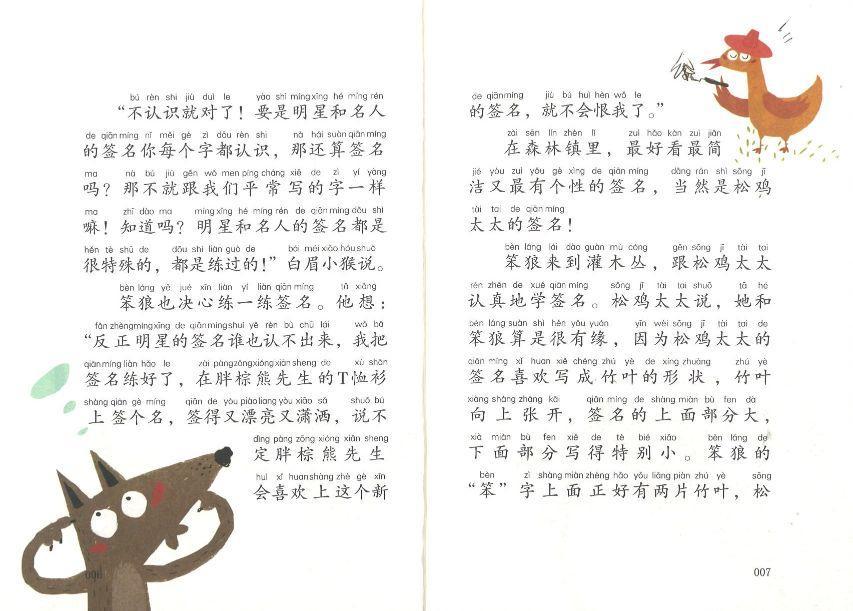 bú rèn shi jiù duì le yào shì míng xīng hé míng rén
“不认识就对了！要是明星和名人
de qiān míng nǐ měi gè zì dōu rèn shi nà hái suàn qiān míng
的签名你每个字都认识，那还算签名
ma nà bú jiù gēn wǒ men píng cháng xiě de zì yí yàng
吗？那不就跟我们平常写的字一样
ma zhī dào ma míng xīng hé míng rén de qiān míng dōu shì
嘛！知道吗？明星和名人的签名都是
hěn tè shū de dōu shì liàn guò de bái méi xiǎo hóu shuō
很特殊的，都是练过的！”白眉小猴说。
bèn láng yě jué xīn liàn yí liàn qiān míng tā xiǎng
笨狼也决心练一练签名。他想：
fǎn zhèng míng xīng de qiān míng shuí yě rèn bù chū lái wǒ bǎ
“反正明星的签名谁也认不出来，我把
qiān míng liàn hǎo le zài pàng zōng xióng xiān sheng de xù shān
签名练好了，在胖棕熊先生的T恤衫
shàng qiān gè míng qiān de yòu piào liang yòu xiāo sǎ shuō bù
上签个名，签得又漂亮又潇洒，说不
dìng pàng zōng xióng xiān sheng
定胖棕熊先生
huì xǐ huan shàng zhè gè xīn
会喜欢上这个新
006
de qiān míng jiù bú huì hèn wǒ le
的签名，就不会恨我了。”
zài sēn lín zhèn lǐ zuì hǎo kàn zuì jiǎn
在森林镇里，最好看最简
jié yòu zuì yǒu gè xìng de qiān míng dāng rán shì sōng jī
洁又最有个性的签名，当然是松鸡
tài tai de qiān míng
太太的签名！
bèn láng lái dào guàn mù cóng gēn sōng jī tài tai
笨狼来到灌木丛，跟松鸡太太
rèn zhēn de xué qiān míng sōng jī tài tai shuō tā hé
认真地学签名。松鸡太太说，她和
bèn láng suàn shì hěn yǒu yuán yīn wèi sōng jī tài tai de
笨狼算是很有缘，因为松鸡太太的
qiān míng xǐ huan xiě chéng zhú yè de xíng zhuàng zhú yè
签名喜欢写成竹叶的形状，竹叶
xiàng shàng zhāng kāi qiān míng de shàng miàn bù fen dà
向上张开，签名的上面部分大，
xià miàn bù fen xiě de tè bié xiǎo bèn láng de
下面部分写得特别小。笨狼的
bèn zì shàng miàn zhèng hǎo yǒu liǎng piàn zhú yè sōng
“笨”字上面正好有两片竹叶，松
007